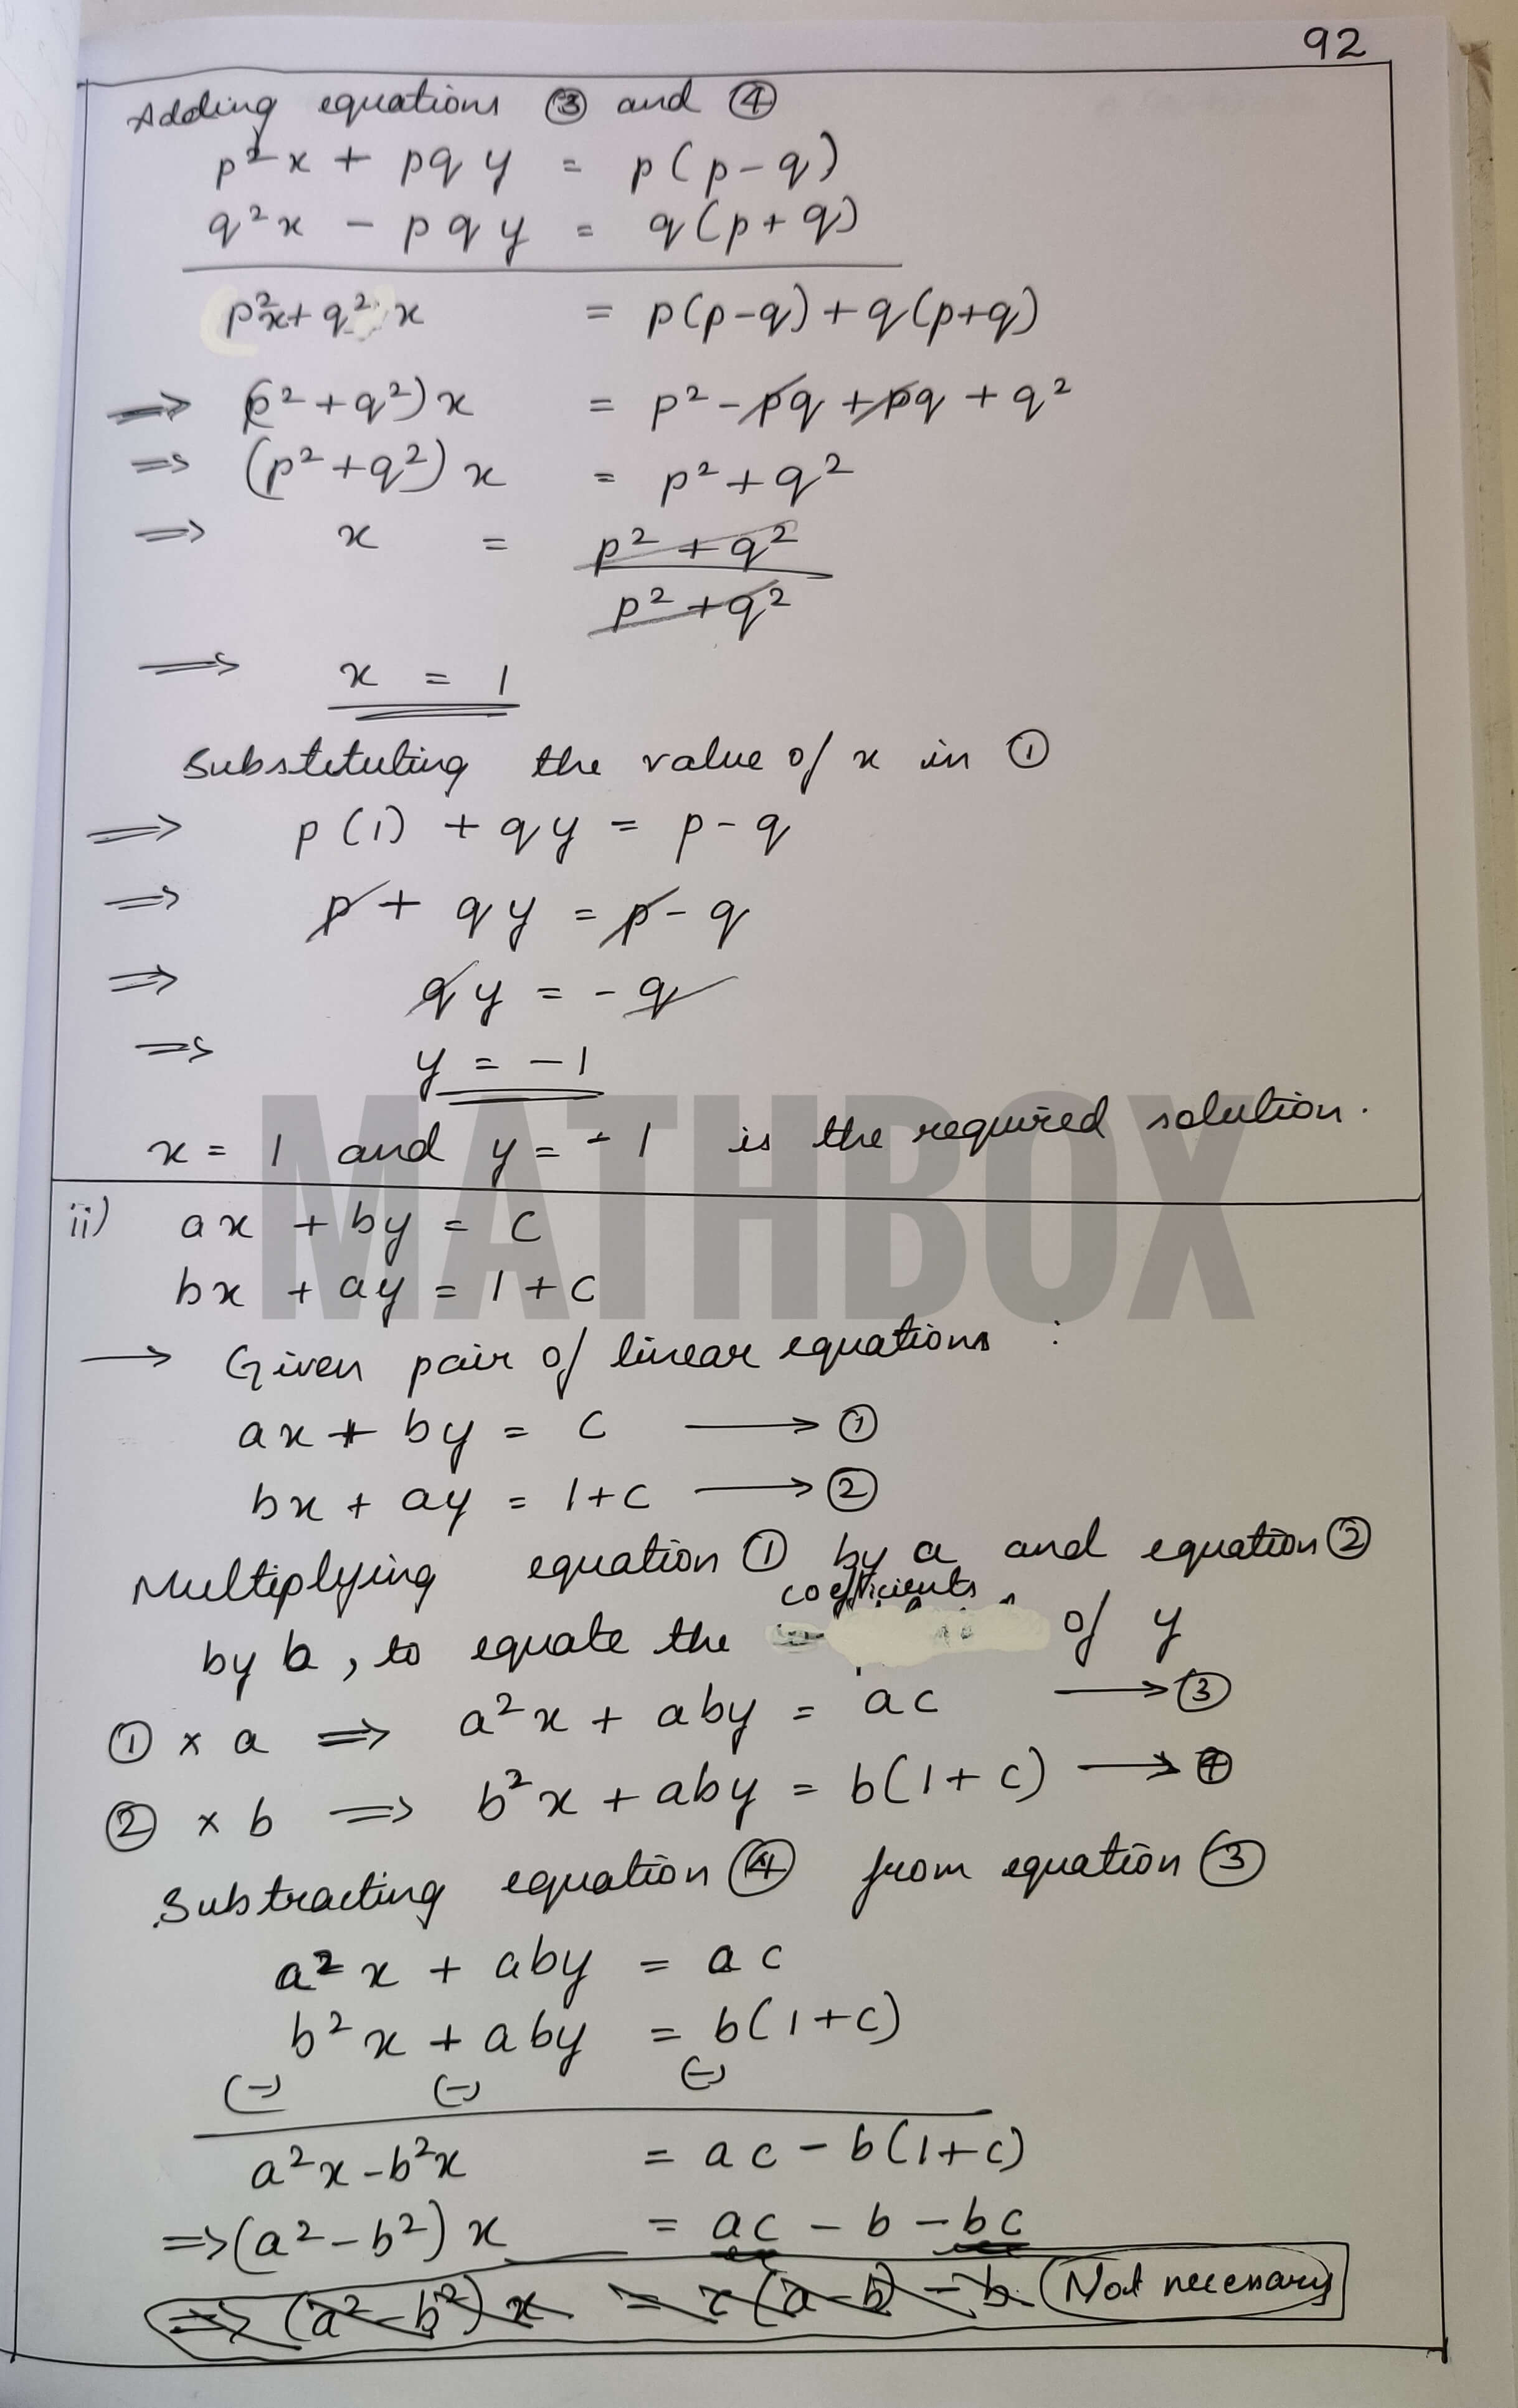 92
Adding equations ③ and ④
p²x + pqy = p(p-q)
q²x - pqy = q(p+q)
p²x + q²x = p(p-q)+q(p+q)
⇒ (p²+q²)x = p² - pq + pq + q²
⇒ (p²+q²)x = p²+q²
⇒ x = p²+q²
p²+q²
⇒ x = 1
Substituting the value of x in ①
⇒ p(1) + qy = p-q
⇒ p + qy = p - q
⇒ qy = -q
⇒ y = -1
x = 1 and y = -1 is the required solution.
MATHBOX
ii) ax + by = c
bx + ay = 1+c
→ Given pair of linear equations :
ax + by = c → ①
bx + ay = 1+c → ②
Multiplying equation ① by a and equation ②
coefficients
by b, to equate the of y
① × a ⇒ a²x + aby = ac → ③
② × b ⇒ b²x + aby = b(1+c) → ④
Subtracting equation ④ from equation ③
a²x + aby = ac
b²x + aby = b(1+c)
(-) (-) (-)
a²x - b²x = ac - b(1+c)
⇒ (a²-b²)x = ac - b - bc
⇒ (a²-b²)x = c(a-b) - b (Not necessary)